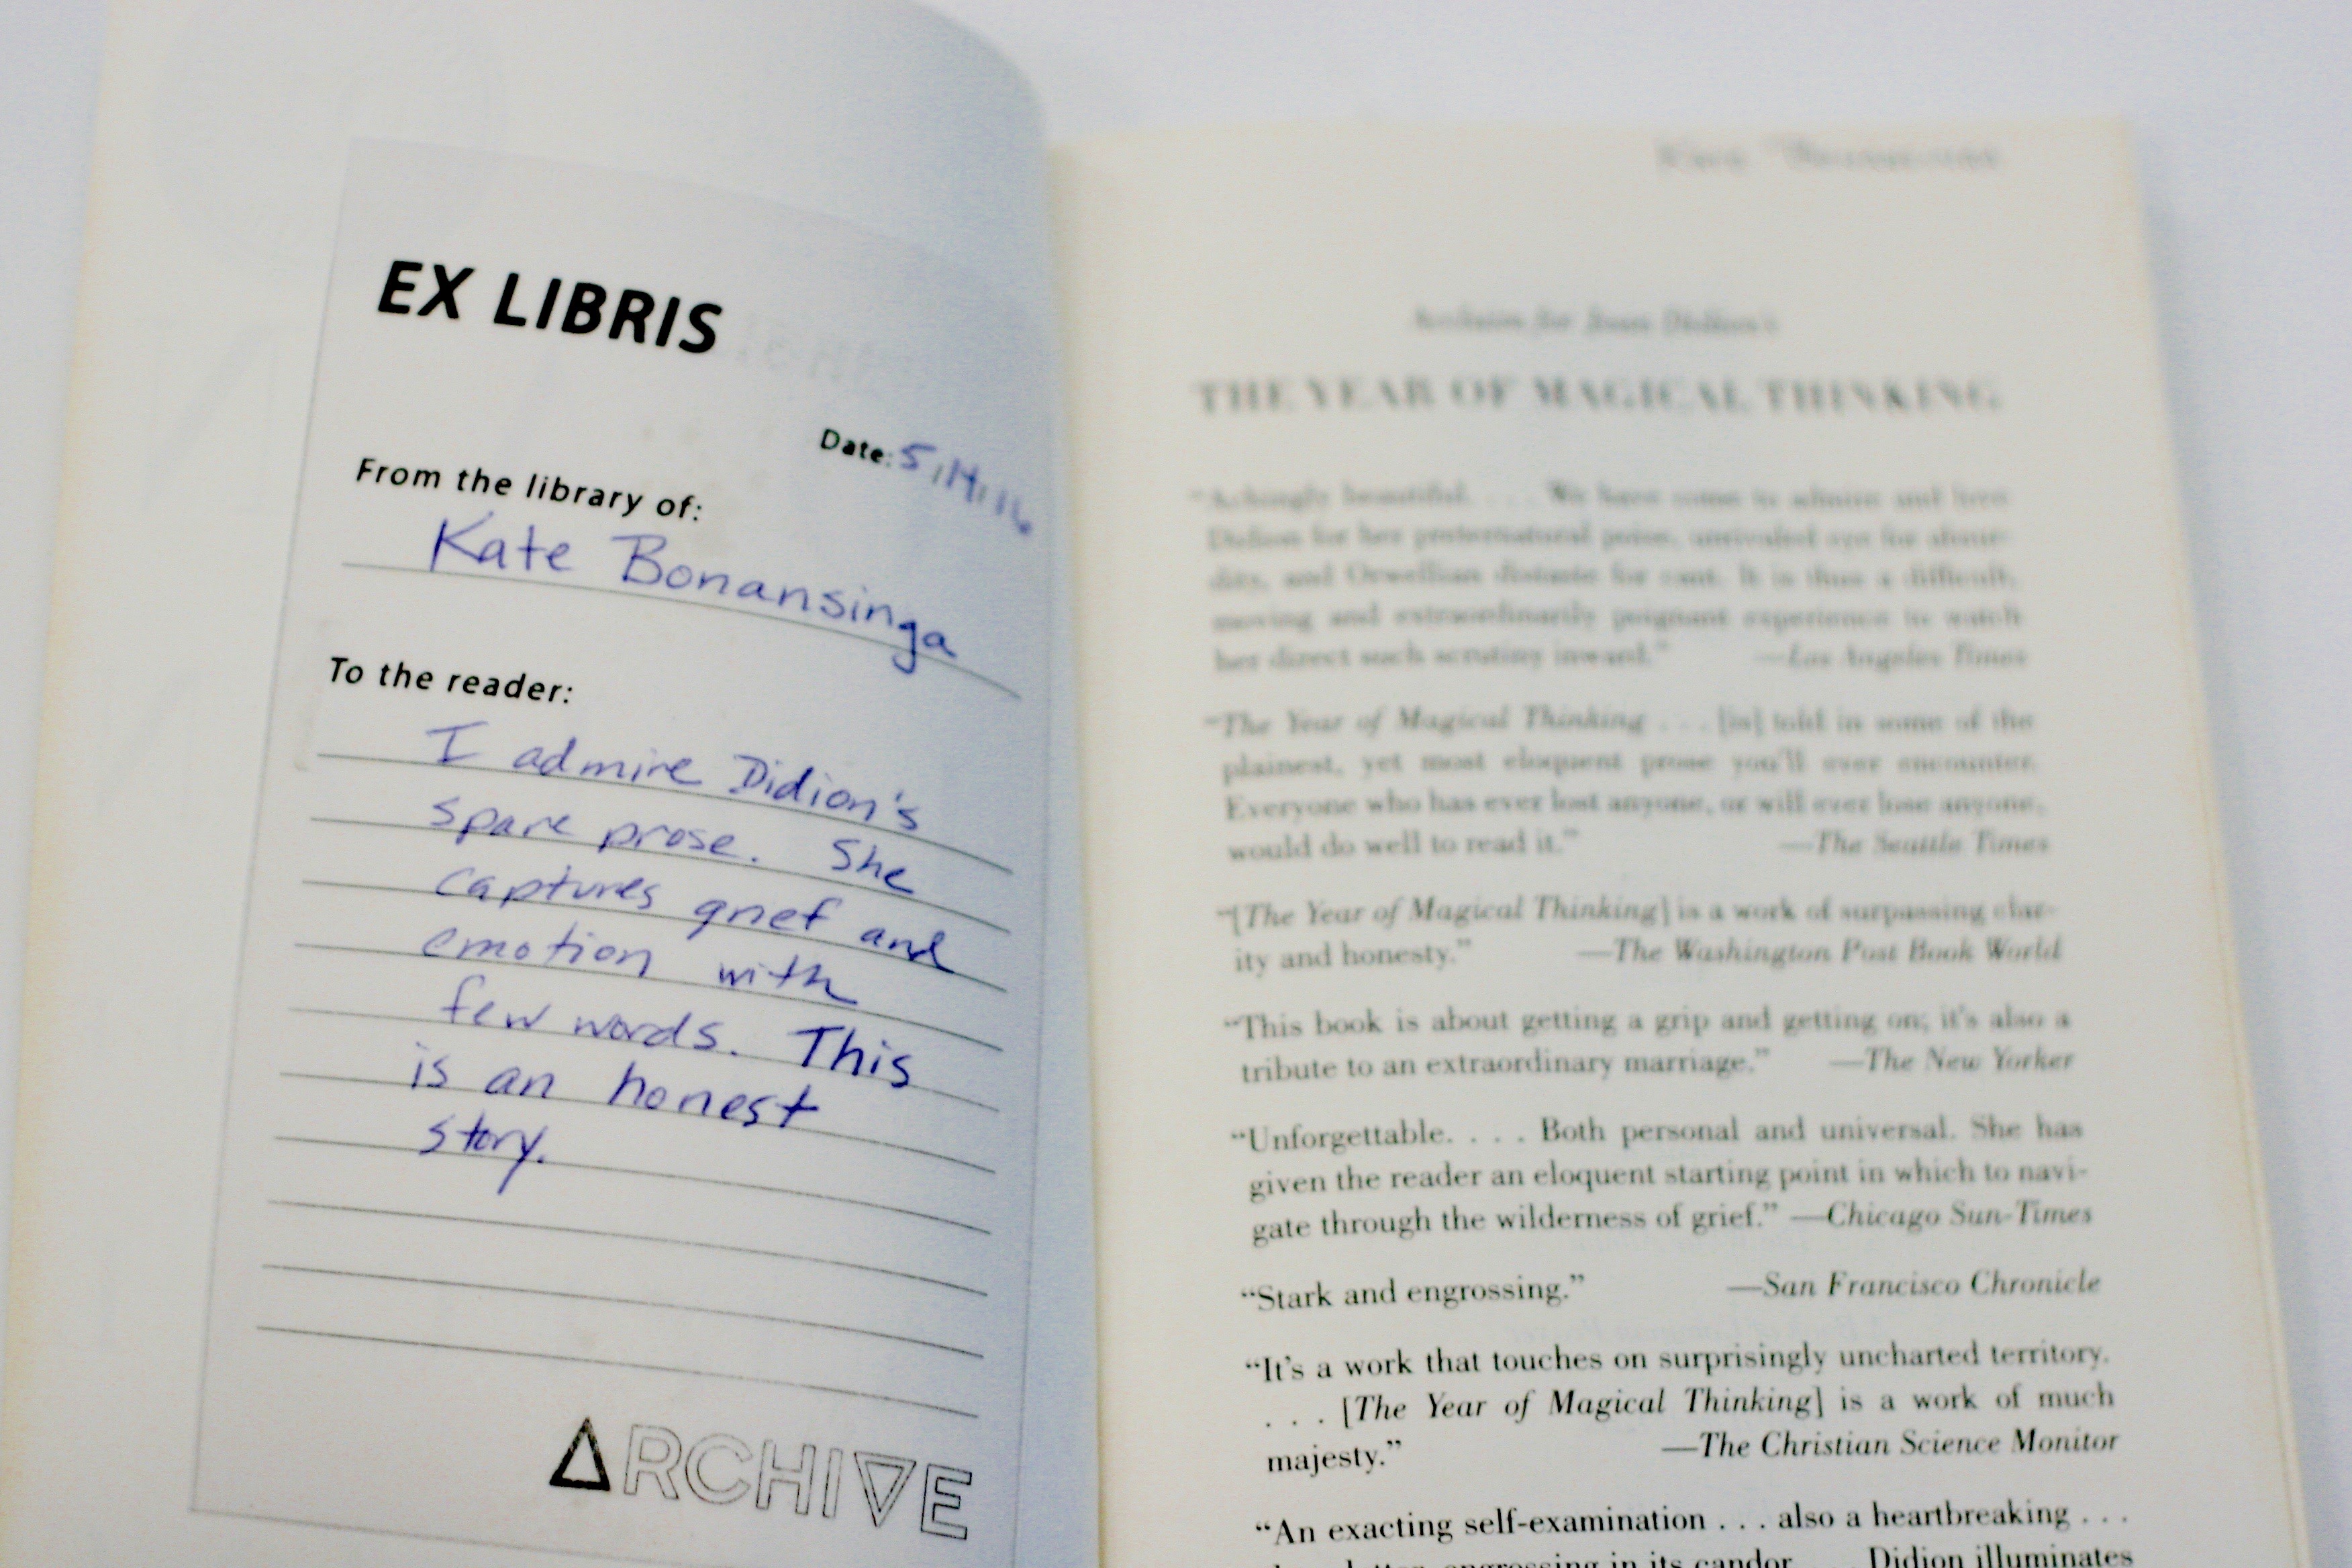 EX LIBRIS
Date: 5/14/16
From the library of:
Kate Bonansinga
To the reader:
I admire Didion's
spare prose. She
captures grief and
emotion with
few words. This
is an honest
story.
ARCHIVE
Kate Bonansinga
Acclaim for Joan Didion's
THE YEAR OF MAGICAL THINKING
"Achingly beautiful. . . . We have come to admire and love
Didion for her preternatural poise, unrivaled eye for absur-
dity, and Orwellian distaste for cant. It is thus a difficult,
moving and extraordinarily poignant experience to watch
her direct such scrutiny inward." —Los Angeles Times
"The Year of Magical Thinking . . . [is] told in some of the
plainest, yet most eloquent prose you'll ever encounter.
Everyone who has ever lost anyone, or will ever lose anyone,
would do well to read it." —The Seattle Times
"[The Year of Magical Thinking] is a work of surpassing clar-
ity and honesty." —The Washington Post Book World
"This book is about getting a grip and getting on; it's also a
tribute to an extraordinary marriage." —The New Yorker
"Unforgettable. . . . Both personal and universal. She has
given the reader an eloquent starting point in which to navi-
gate through the wilderness of grief." —Chicago Sun-Times
"Stark and engrossing." —San Francisco Chronicle
"It's a work that touches on surprisingly uncharted territory.
. . . [The Year of Magical Thinking] is a work of much
majesty." —The Christian Science Monitor
"An exacting self-examination . . . also a heartbreaking . . .
letter, engrossing in its candor. . . . Didion illuminates